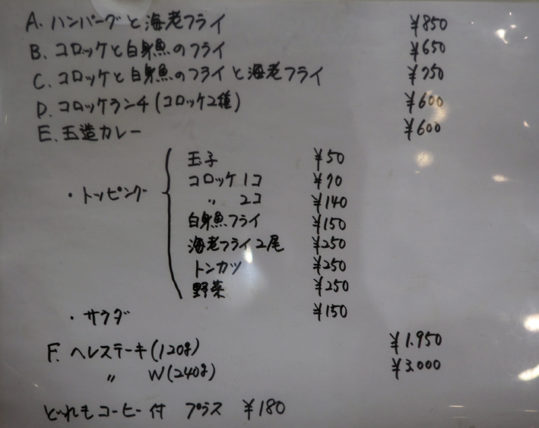 A. ハンバーグと海老フライ ¥850
B. コロッケと白身魚のフライ ¥650
C. コロッケと白身魚のフライと海老フライ ¥750
D. コロッケランチ(コロッケ2種) ¥600
E. 玉造カレー ¥600
・トッピング
玉子 ¥50
コロッケ1コ ¥70
〃 2コ ¥140
白身魚フライ ¥150
海老フライ2尾 ¥250
トンカツ ¥250
野菜 ¥250
・サラダ ¥150
F. ヘレステーキ(120g) ¥1.950
〃 W(240g) ¥3.000
どれもコーヒー付 プラス ¥180